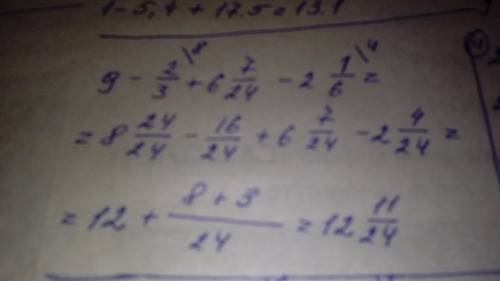 1-5,4 + 17.5 = 13.1
9 - 2/3 \8 + 6 7/24 - 2 1/6 \4 =
= 8 24/24 - 16/24 + 6 7/24 - 2 4/24 =
= 12 + 8 + 3/24 = 12 11/24